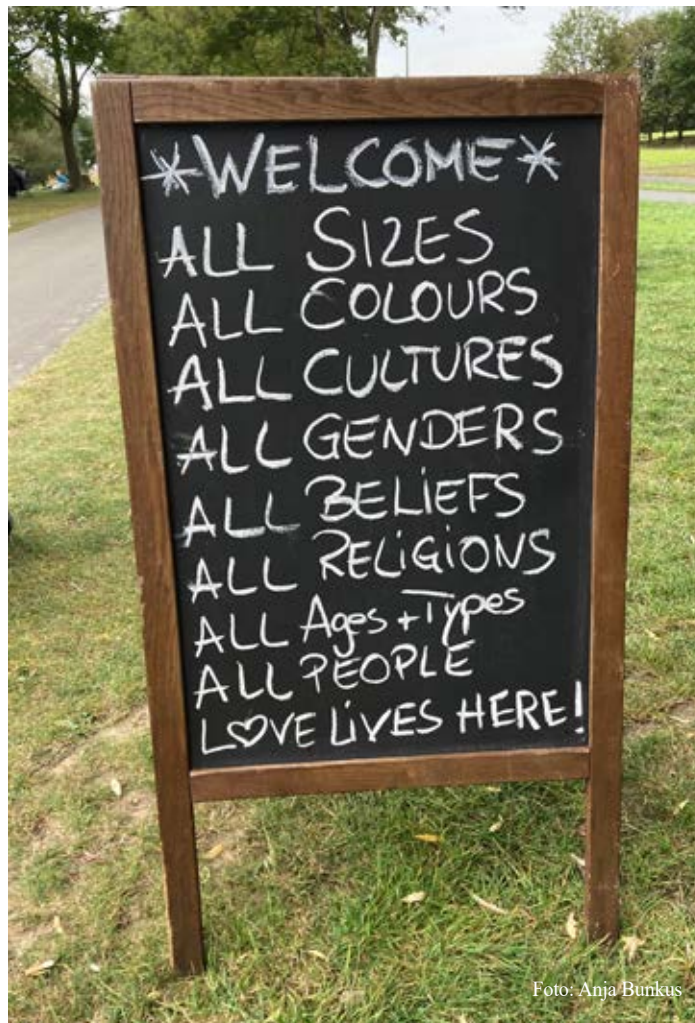 *WELCOME*
ALL SIZES
ALL COLOURS
ALL CULTURES
ALL GENDERS
ALL BELiEFS
ALL RELiGiONS
ALL Ages + Types
ALL PEOPLE
L♡VE LiVES HERE!
Foto: Anja Bunkus